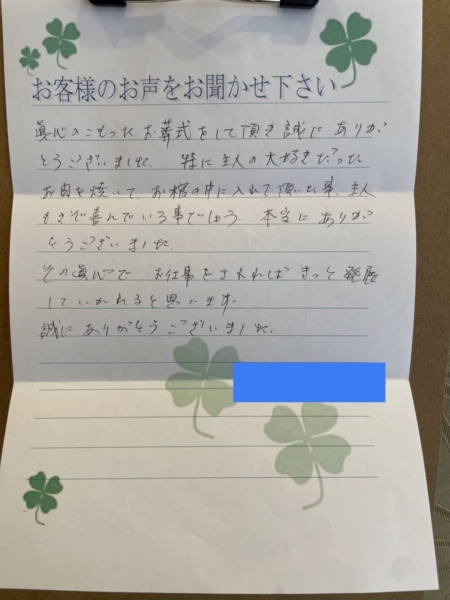 お客様のお声をお聞かせ下さい
真心のこもったお葬式をして頂き誠にありが
とうございました。特に主人の大好きだった
お肉を焼いて、お棺の中に入れて頂いた事、主人
もさぞ喜んでいる事でしょう。本当にありが
とうございました。
その真心で お仕事をされれば きっと発展
していかれると思います。
誠にありがとうございました。